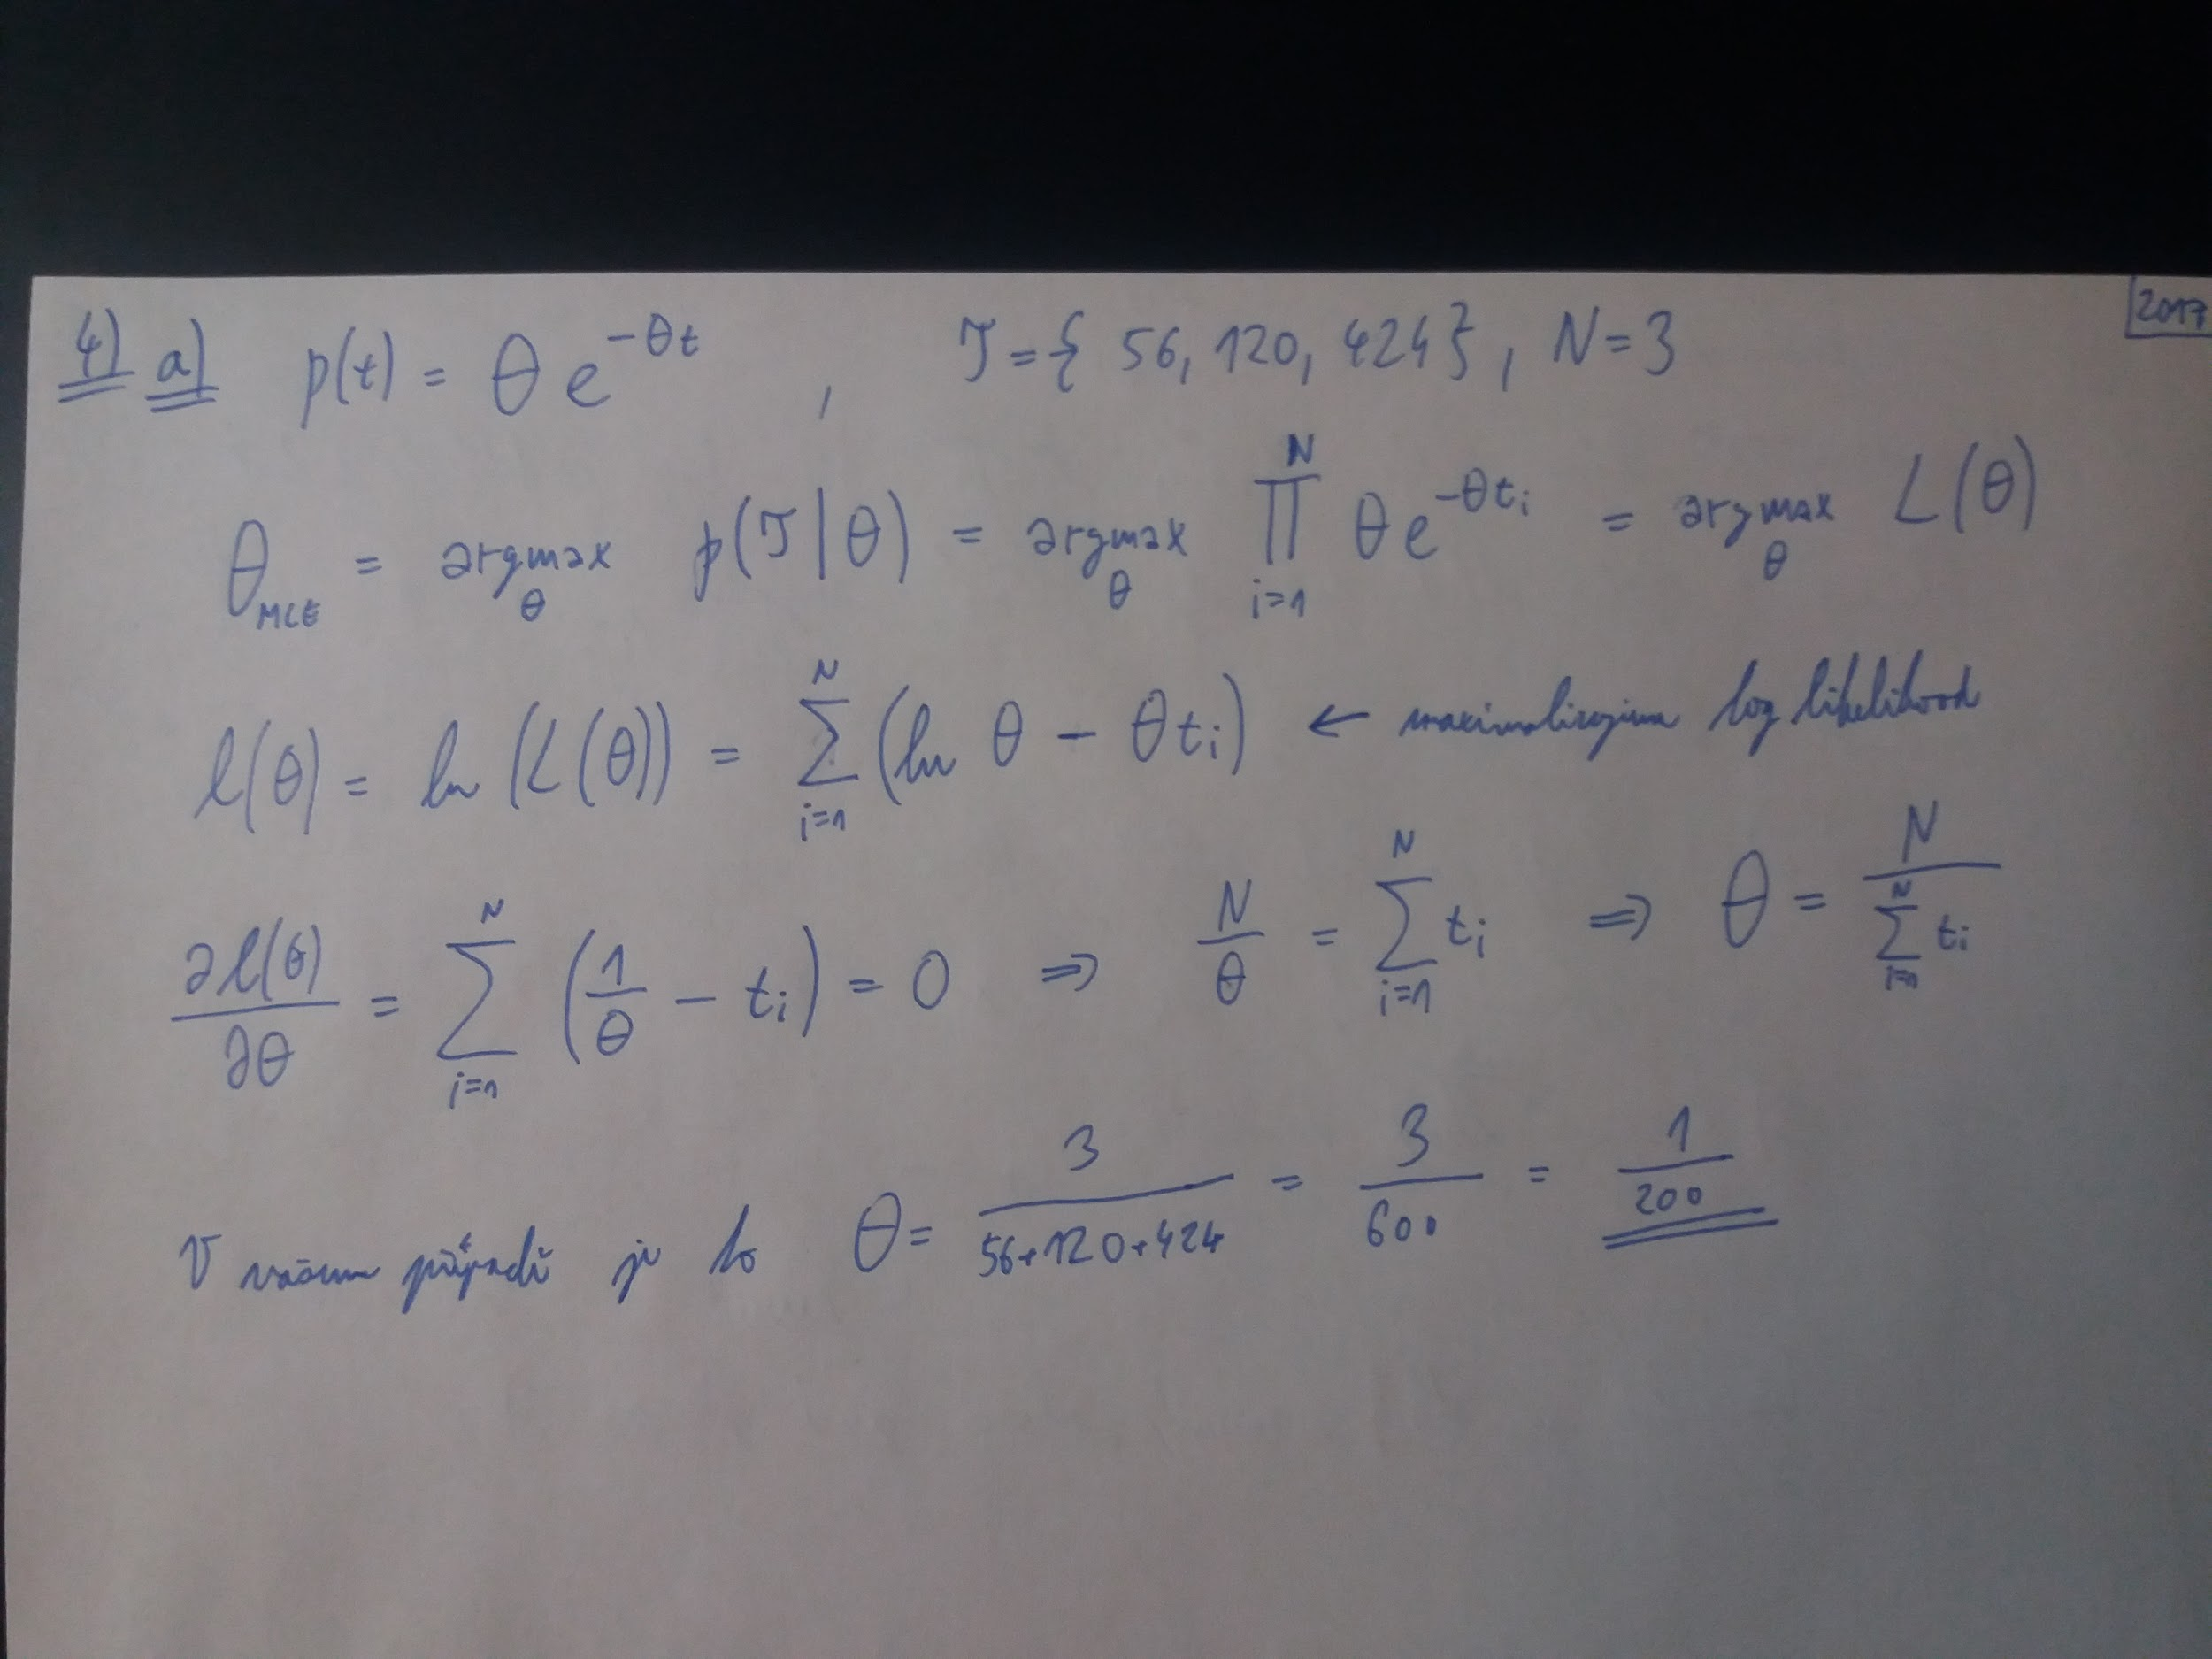 2017
4) a) p(t) = θ e^{-θt} , T = { 56, 120, 424 } , N = 3
θ_{MLE} = argmax_θ p(T|θ) = argmax_θ ∏_{i=1}^{N} θ e^{-θ t_i} = argmax_θ L(θ)
l(θ) = ln (L(θ)) = ∑_{i=1}^{N} (ln θ - θ t_i) ← maximalizujeme log likelihood
∂l(θ)/∂θ = ∑_{i=1}^{N} (1/θ - t_i) = 0 ⇒ N/θ = ∑_{i=1}^{N} t_i ⇒ θ = N / ∑_{i=1}^{N} t_i
V našem případě je to θ = 3/(56+120+424) = 3/600 = 1/200